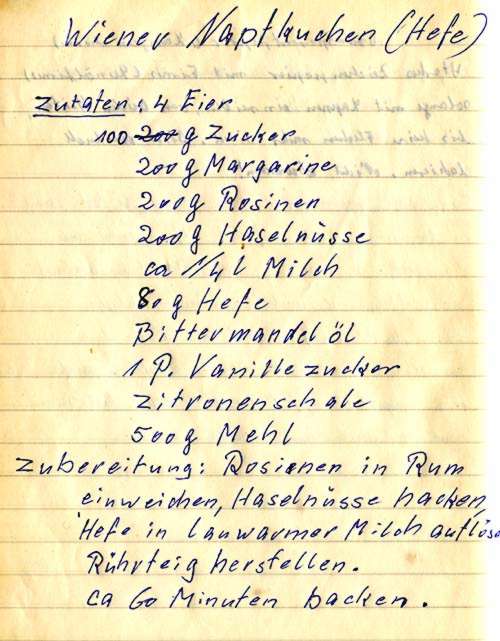 Wiener Napfkuchen (Hefe)
Zutaten: 4 Eier
100 200 g Zucker
200g Margarine
200g Rosinen
200g Haselnüsse
ca 1/4 l Milch
80 g Hefe
Bittermandelöl
1 P. Vanillezucker
Zitronenschale
500g Mehl
Zubereitung: Rosienen in Rum
einweichen, Haselnüsse hacken,
Hefe in lauwarmer Milch auflöse
Rührteig herstellen.
ca 60 Minuten backen.